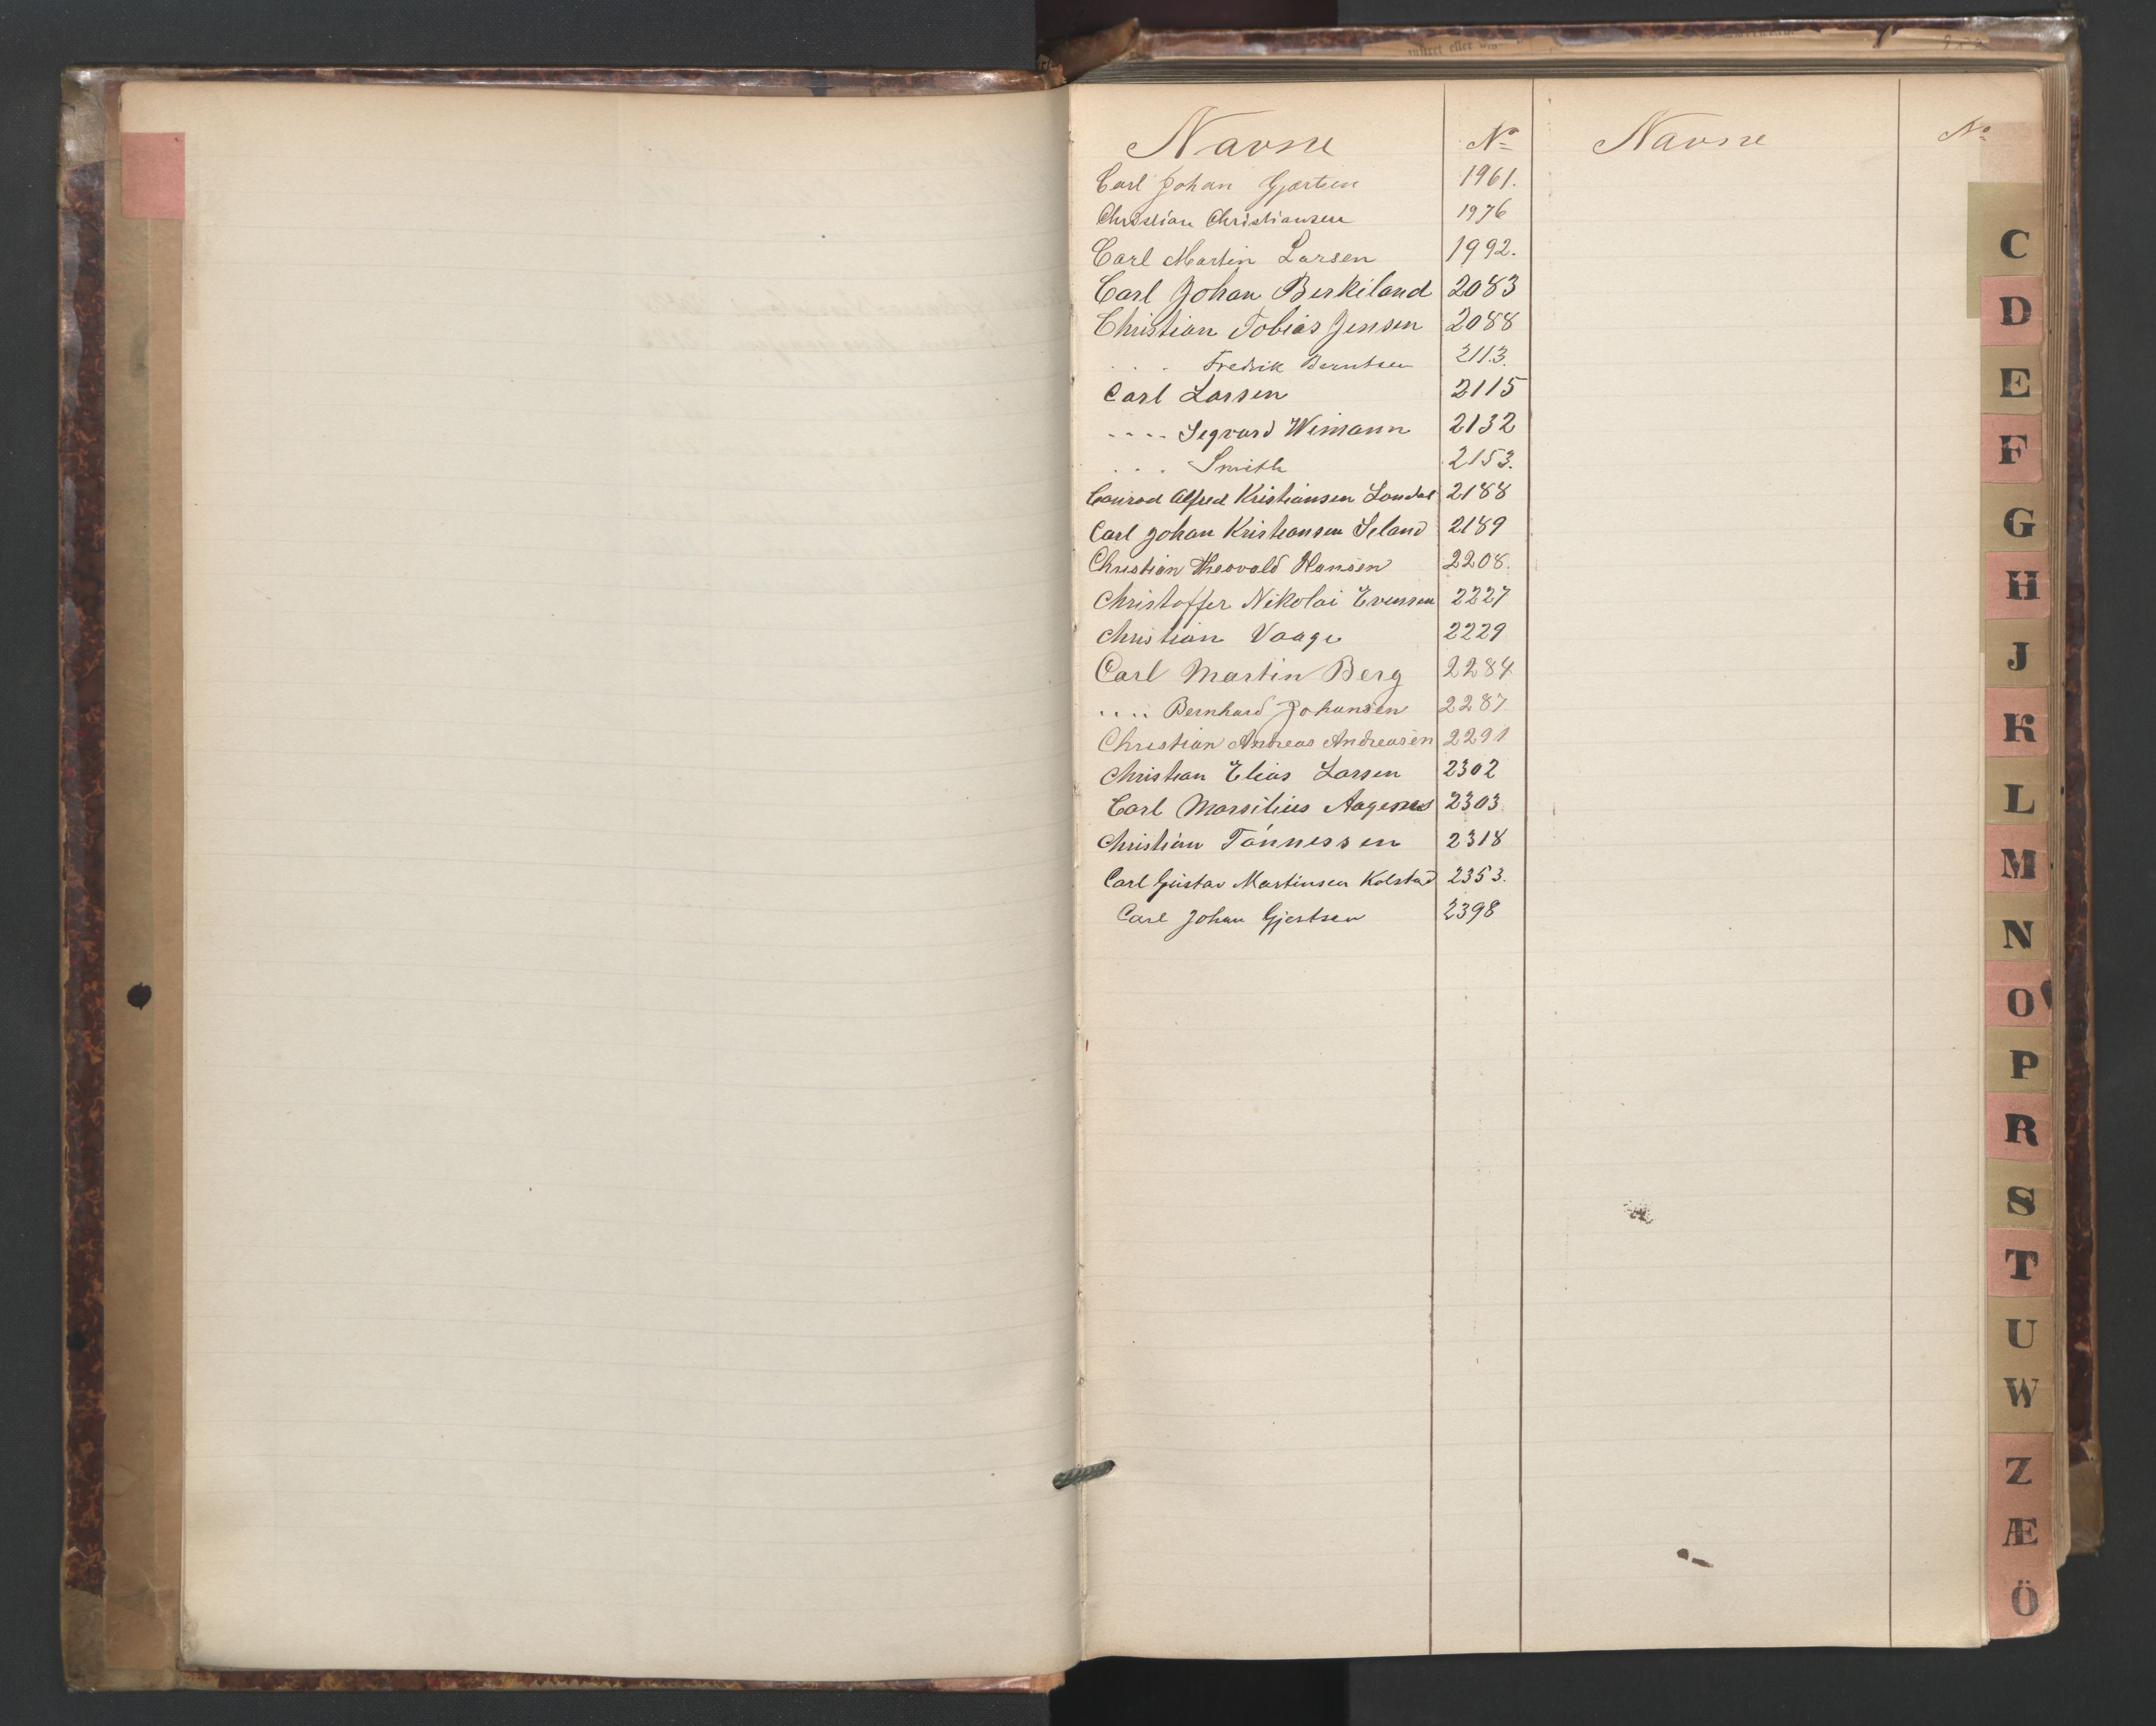 Navne No Navne No
Carl Johan Gjertsen 1961.
Christian Christiansen 1976
Carl Martin Larsen 1992.
Carl Johan Birkiland 2083
Christian Tobias Jensen 2088
. . . Fredrik Berntsen 2113.
Carl Larsen 2115
. . . . Segvard Weimann 2132
. . . Smith 2153.
Conrad Alfred Kristiansen Londal 2188
Carl Johan Kristiansen Seland 2189
Christian Theovald Hansen 2208.
Christoffer Nikolai Evensen 2227
Christian Vaage 2229
Carl Martin Berg 2284
. . . . Bernhard Johansen 2287
Christian Andreas Andreasen 2291
Christian Elias Larsen 2302
Carl Marsilius Aagenes 2303
Christian Tönnessen 2318
Carl Gustav Martinsen Kolstad 2353.
Carl Johan Gjertsen 2398
C
D
E
F
G
H
J
K
L
M
N
O
P
R
S
T
U
W
Z
Æ
Ö